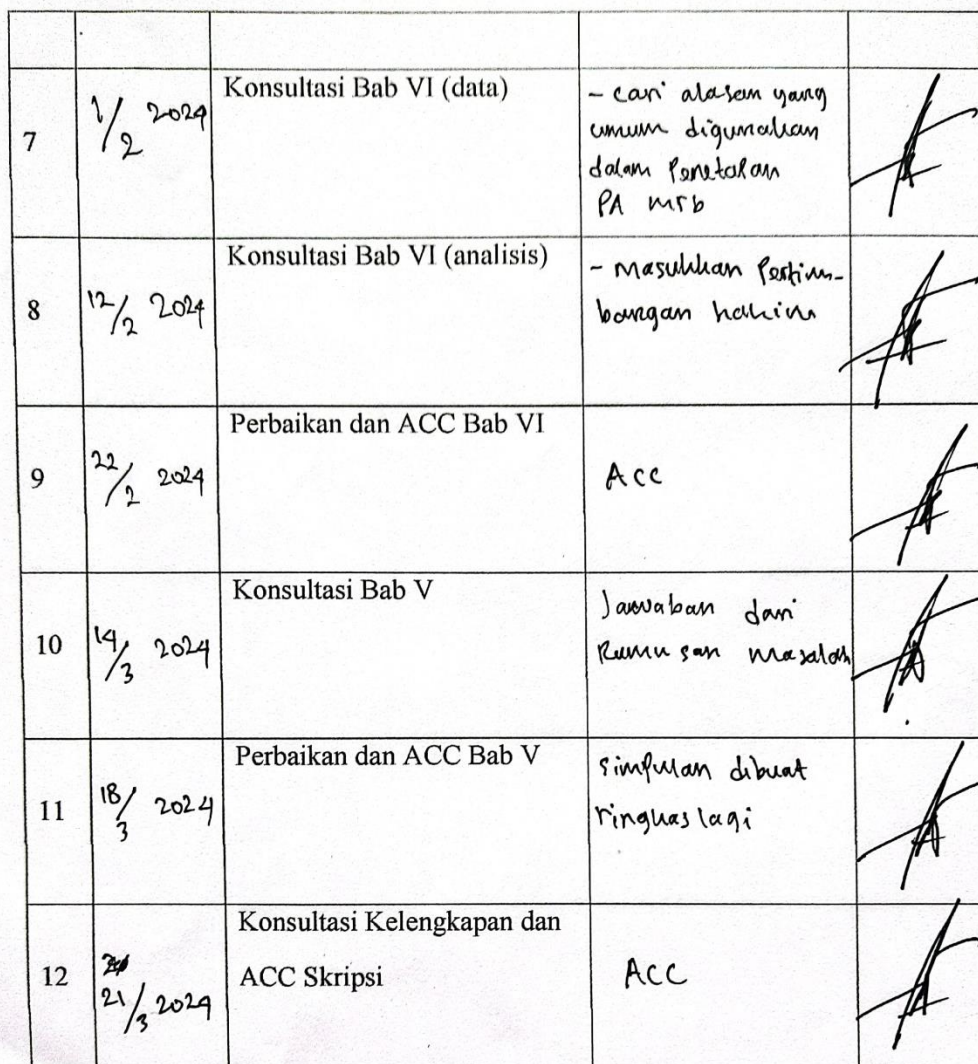 7
1/2 2024
Konsultasi Bab VI (data)
- cari alasan yang
umum digunakan
dalam Penetapan
PA mrb
8
12/2 2024
Konsultasi Bab VI (analisis)
- Masukkan Pertim-
bangan hakim
9
22/2 2024
Perbaikan dan ACC Bab VI
Acc
10
14/3 2024
Konsultasi Bab V
Jawaban dari
Rumusan masalah
11
18/3 2024
Perbaikan dan ACC Bab V
simpulan dibuat
ringkas lagi
12
21/3 2024
Konsultasi Kelengkapan dan
ACC Skripsi
ACC